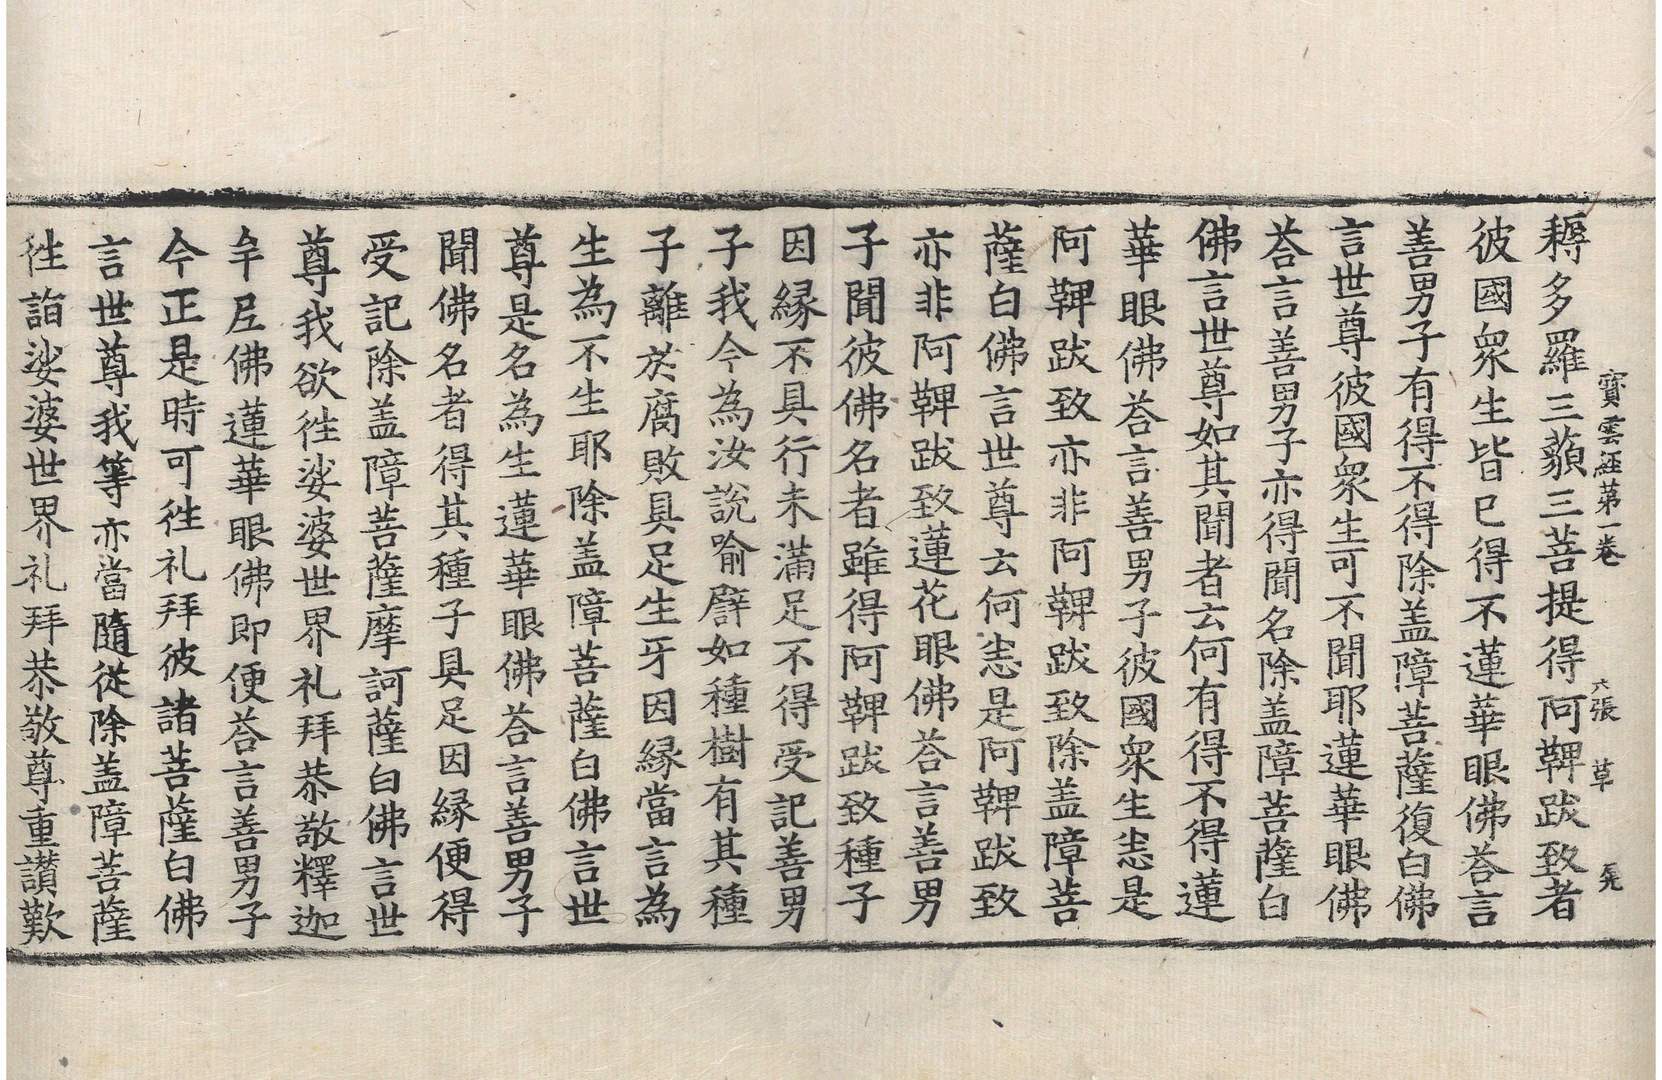 寳雲經第一卷 六張 草
耨多羅三藐三菩提得阿鞞跋致者
彼國衆生皆已得不蓮華眼佛荅言
善男子有得不得除盖障菩薩復白佛
言世尊彼國衆生可不聞耶蓮華眼佛
荅言善男子亦得聞名除盖障菩薩白
佛言世尊如其聞者云何有得不得蓮
華眼佛荅言善男子彼國衆生恚是
阿鞞跋致亦非阿鞞跋致除盖障菩
薩白佛言世尊云何恚是阿鞞跋致
亦非阿鞞跋致蓮花眼佛荅言善男
子聞彼佛名者雖得阿鞞跋致種子
因縁不具行未滿足不得受記善男
子我今為汝說喻譬如種樹有其種
子離於腐敗具足生牙因縁當言為
生為不生耶除盖障菩薩白佛言世
尊是名為生蓮華眼佛荅言善男子
聞佛名者得其種子具足因縁便得
受記除盖障菩薩摩訶薩白佛言世
尊我欲徃娑婆世界礼拜恭敬釋迦
牟𡰱佛蓮華眼佛即便荅言善男子
今正是時可徃礼拜彼諸菩薩白佛
言世尊我等亦當隨從除盖障菩薩
徃詣娑婆世界礼拜恭敬尊重讃歎